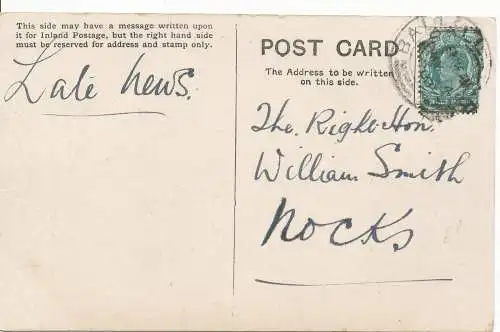 This side may have a message written upon
it for Inland Postage, but the right hand side
must be reserved for address and stamp only.
Late News.
POST CARD
The Address to be written
on this side.
The. Right-Hon.
William Smith
Nocks